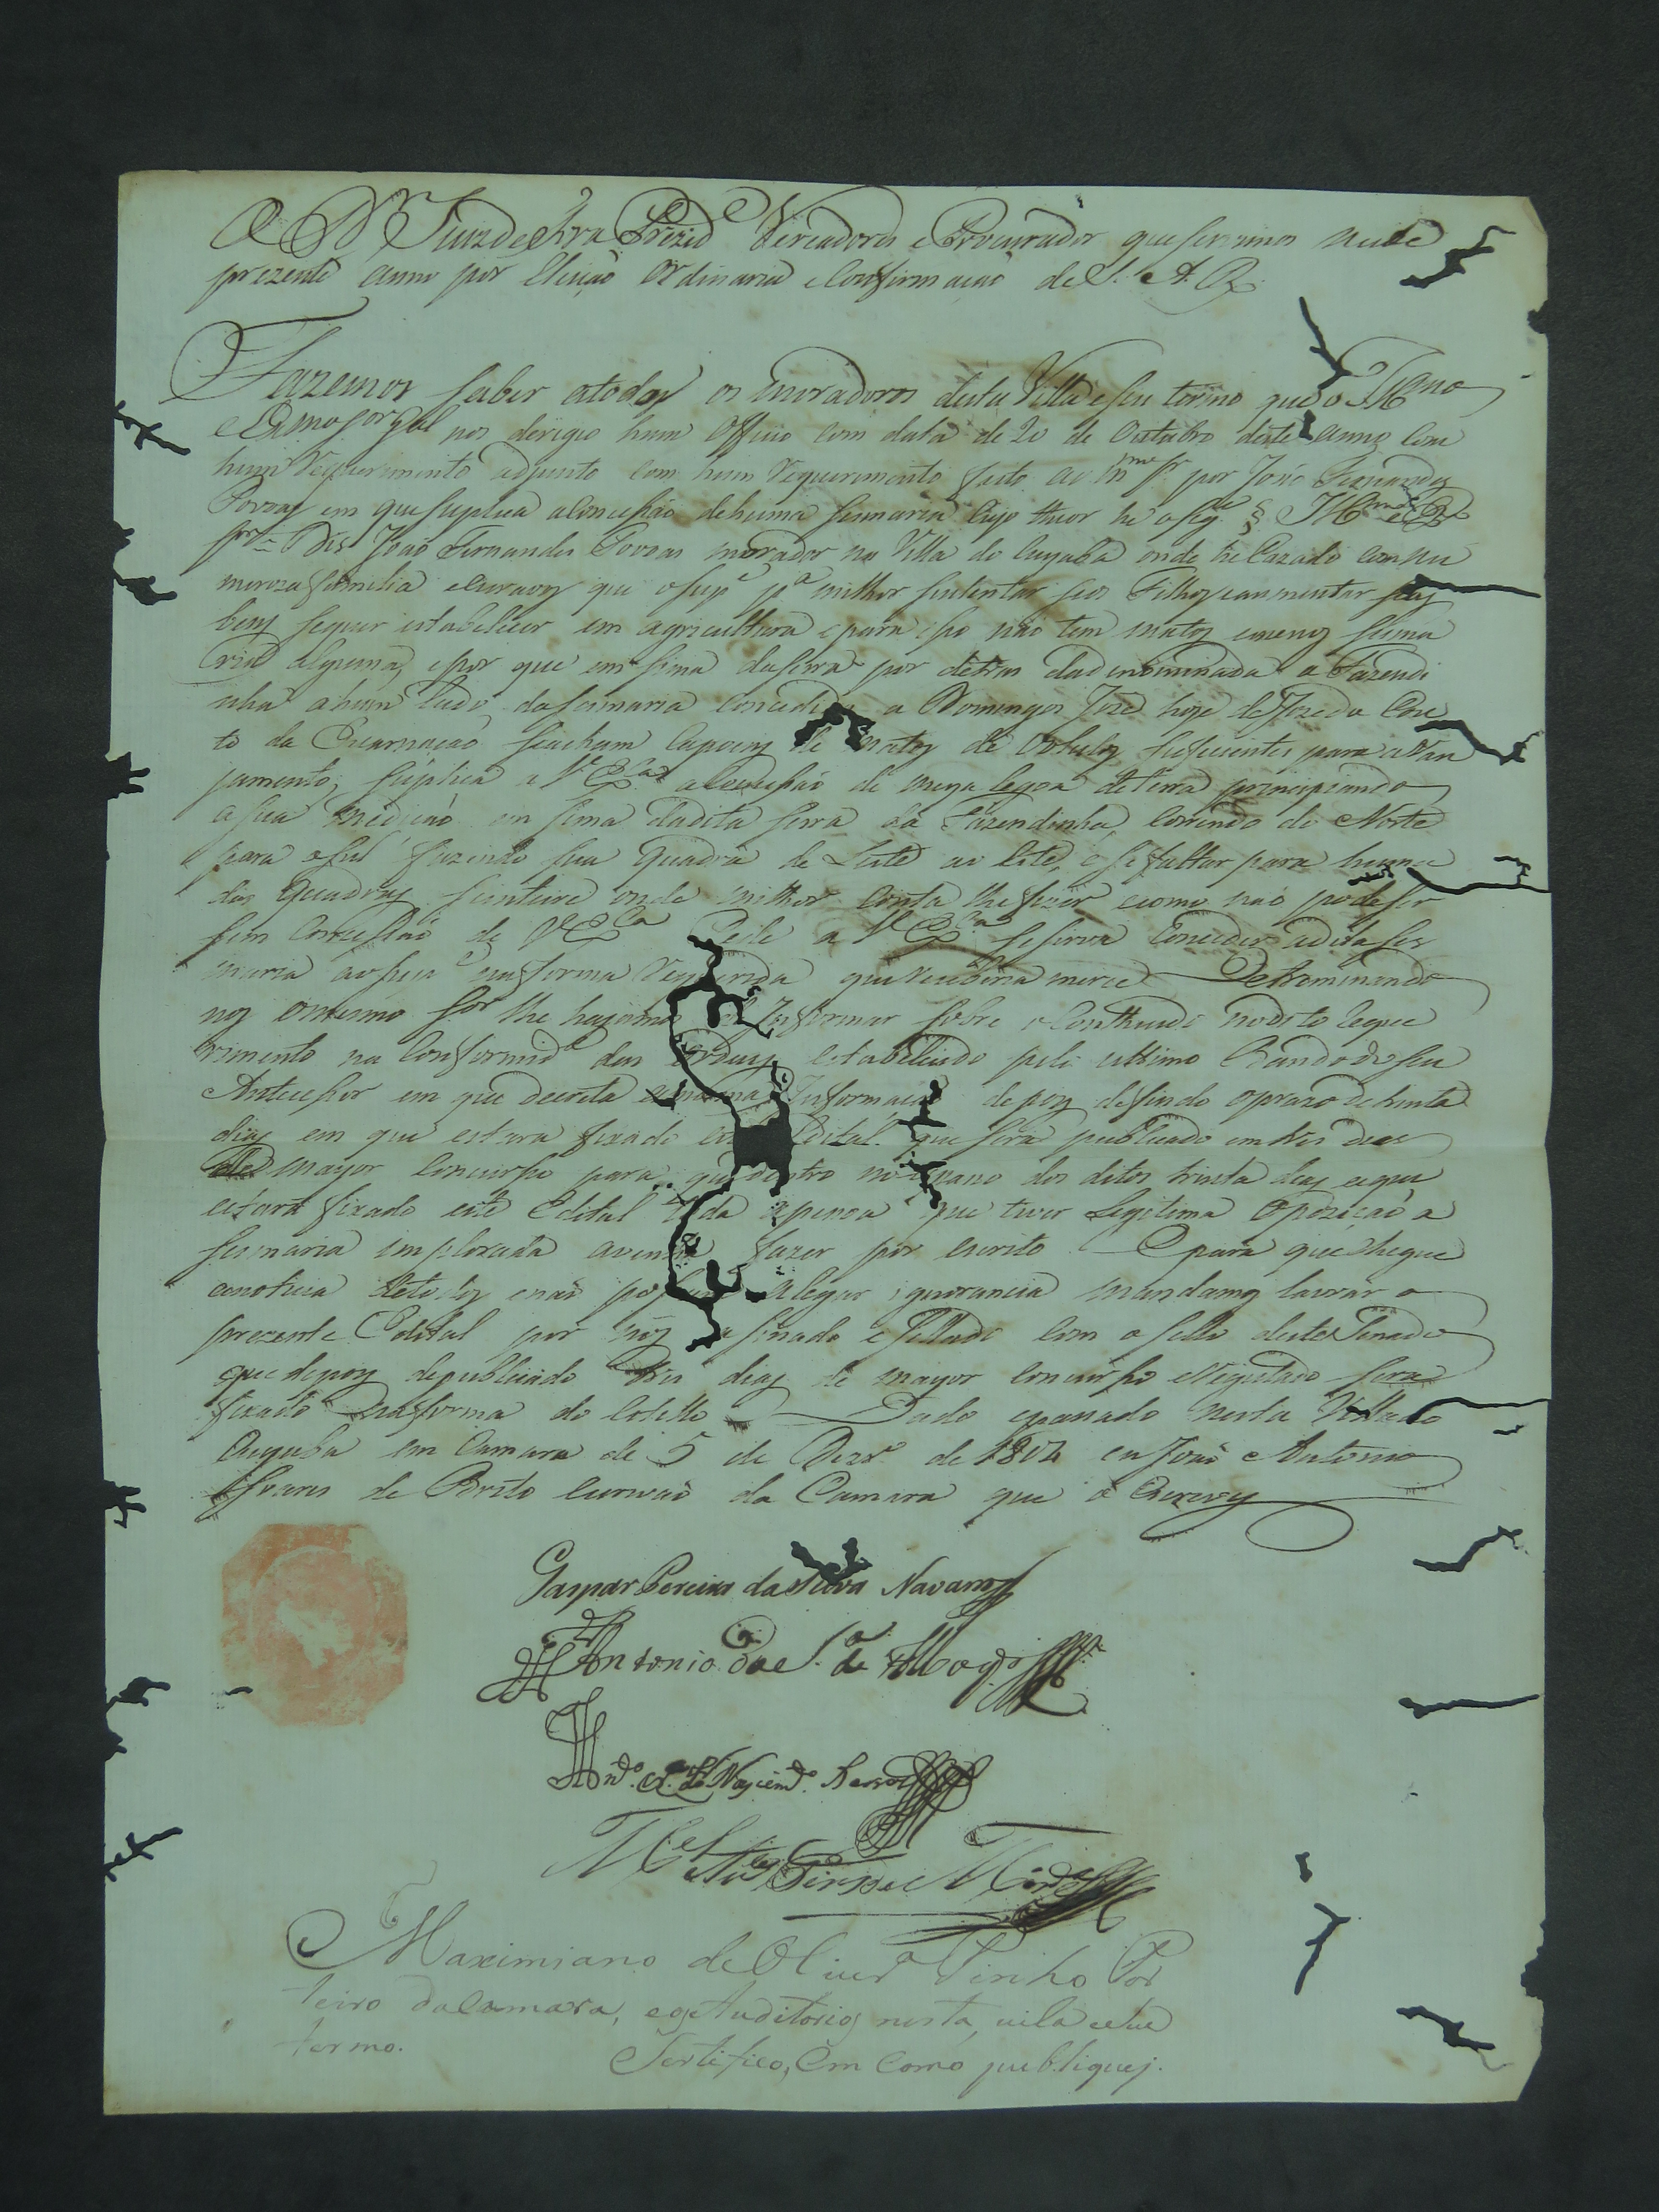 O D.r Juiz de Fora Prezid.e Vereadores e Procurador que servimos neste
prezente anno por Eleição Ordinaria e Confirmação de S. A. R.
Fazemos saber atodos os moradores desta Villa e seu termo que o Il.mo
e Ex.mo S.or G.al nos derigio hum Officio com data de 20 de Outubro deste anno com
hum requerimento adjunto com hum requerimento feito ao m.mo S.r por João Fernandes
Povoas em que suplica a Concessão de huma sesmaria cujo theor he o seg.te § Il.mo e Ex.mo
Sr. Dis João Fernandes Povoas morador na Villa do Cuyabá onde he Cazado com nu
meroza familia e escravos que o sup.e p.a milhor sustentar seos Filhos e aumentar seos
bens sequer estabelecer em agricultura e para isso não tem matos e menos sesma
ria alguma, e por que em sima da serra por detras da denominada a Fazendi
nha a hum lado da sesmaria concedida a Domingos José hoje de José da Cos
ta da Encarnação se acham Capoens de matos de suficientes para arran
jamento, suplica a V. Ex.ca a Concessão de meya legoa de terra principiando
a sua medição em sima da dita serra da Fazendinha, correndo de Norte
para o sul fazendo sua quadra de Leste ao Oeste, e se faltar para huma
das quadras se inteire onde milhor conta lhe fizer e como não pode ser
sem Concessão de V. Ex.ca Pede a V. Ex.ca se sirva Conceder a dita ses
maria ao sup.e na forma requerida que recebera merce Determinando
nos o mesmo S.or lhe hajamos de Informar sobre o Conthiudo no dito reque
rimento na Conformid.e das Ordens estabelecido pelo ultimo Bando do seu
Antecessor em que decreta a mesma Informação depois de findo o prazo de trinta
dias em que estara fixado este Edital que sera publicado em tres dias
de mayor Concurso para que dentro no prazo dos ditos trinta dias e que
estara fixado este Edital toda a pessoa que tiver Legitima Opozição a
sesmaria implorada a venha fazer por escrito E para que chegue
a noticia de todos e não possam alegar ignorancia mandamos lavrar o
prezente Edital por nós asinado e sellado com o sello deste Senado
que depois de publicado tres dias de mayor Concurso e registado sera
fixado na forma do Estillo Dado e passado nesta Villa do
Cuyaba em Camara de 5 de Dezr.o de 1804 eu João Antonio
Soares de Brito escrivão da Camara que o Escrevy
Gaspar Pereira da Silva Navarro
Antonio da S.a
do Nascim.do
M.el Pires
Maximiano de Oliver.a Pinho Por
teiro da Camara, e os Auditorios nesta vila e seu
termo. Sertifico, em como publiquej.